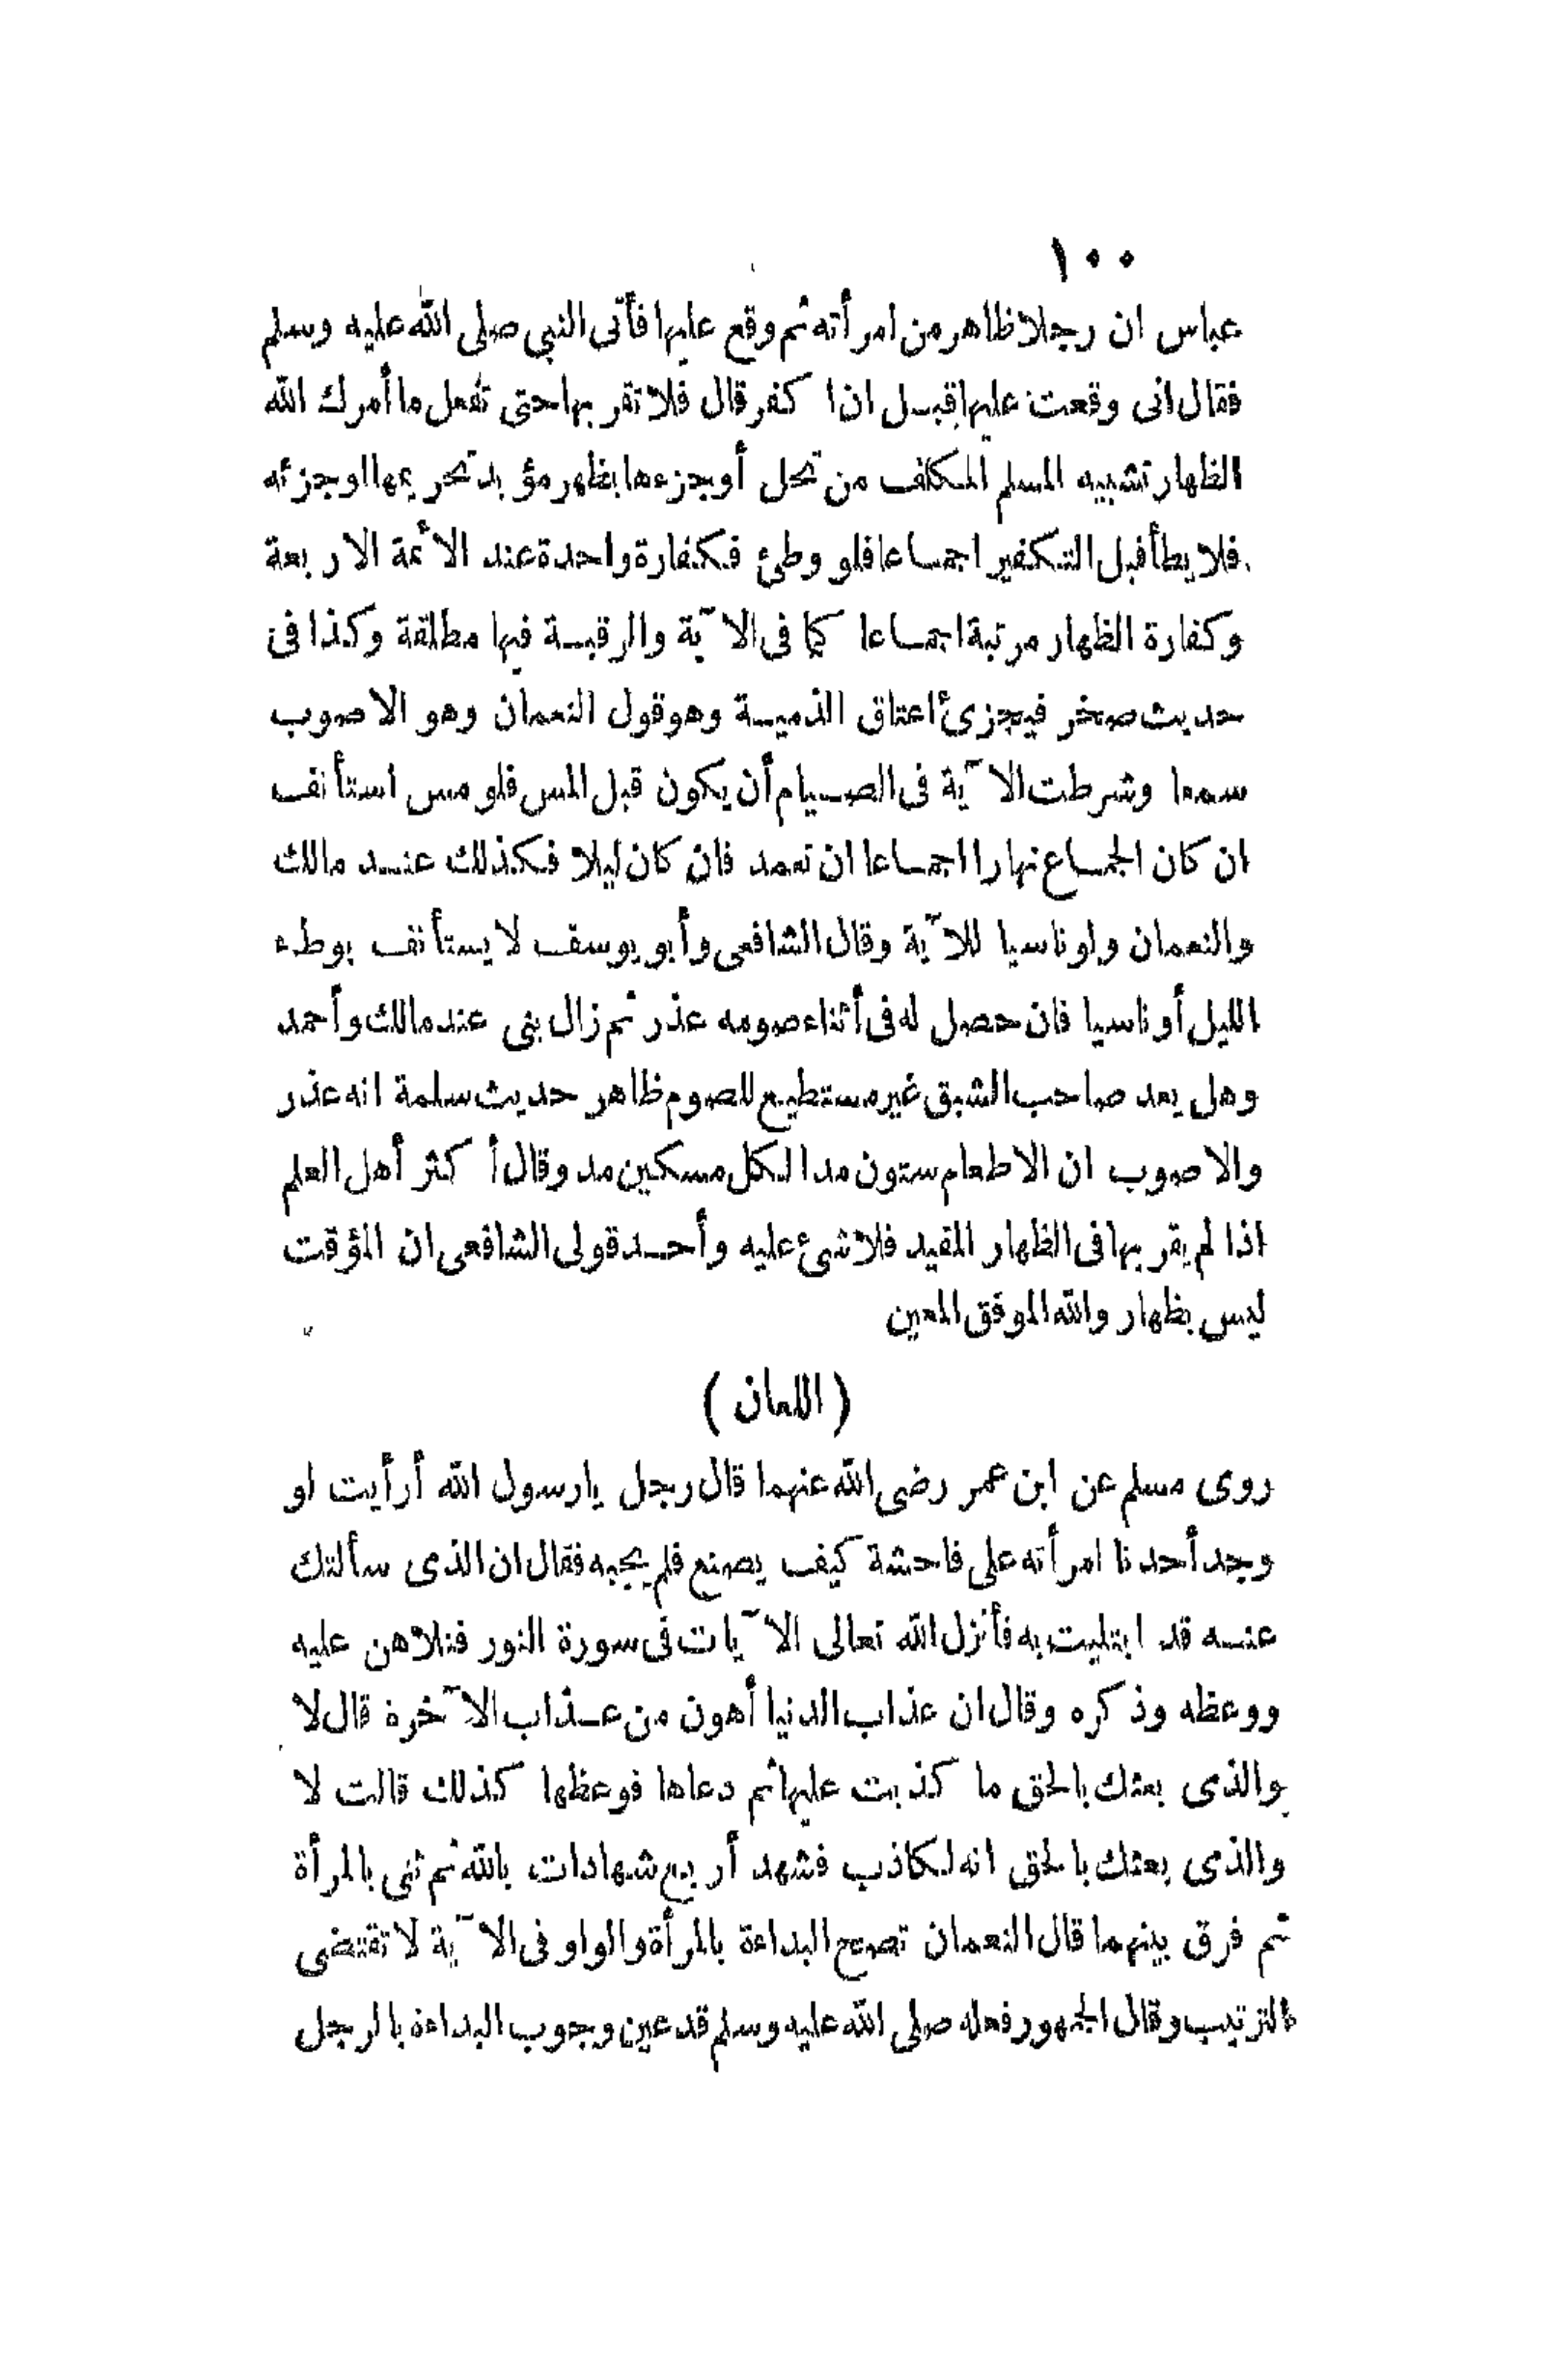 ١٠٠
عباس ان رجلا ظاهر من امرأته ثم وقع عليها فأتى النبي صلى الله عليه وسلم
فقال انى وقعت عليها قبل ان اكفر قال فلا تقربها حتى تفعل ما أمرك الله
الظهار تشبيه المسلم المكلف من تحل أو جزءها بظهر مؤبد تحريمها او جزئه
فلا يطأ قبل التكفير اجماعا فلو وطئ فكفارة واحدة عند الائمة الاربعة
وكفارة الظهار مرتبة اجماعا كما فى الآية والرقبة فيها مطلقة وكذا فى
حديث صخر فيجزئ اعتاق الذمية وهو قول النعمان وهو الاصوب
سمعا وشرطت الآية فى الصيام أن يكون قبل المس فلو مس استأنف
ان كان الجماع نهارا اجماعا ان تعمد فان كان ليلا فكذلك عند مالك
والنعمان ولو ناسيا للآية وقال الشافعى وأبو يوسف لا يستأنف بوطء
الليل أو ناسيا فان حصل له فى أثناء صومه عذر ثم زال بنى عند مالك وأحمد
وهل يعد صاحب الشبق غير مستطيع للصوم ظاهر حديث سلمة انه عذر
والاصوب ان الاطعام ستون مدا لكل مسكين مد وقال أكثر أهل العلم
اذا لم يقربها فى الظهار المقيد فلا شئ عليه وأحد قولى الشافعى ان المؤقت
ليس بظهار والله الموفق المعين
( اللعان )
روى مسلم عن ابن عمر رضى الله عنهما قال رجل يا رسول الله أرأيت لو
وجد أحدنا امرأته على فاحشة كيف يصنع فلم يجبه فقال ان الذى سألتك
عنه قد ابتليت به فأنزل الله تعالى الآيات فى سورة النور فتلاهن عليه
ووعظه وذكره وقال ان عذاب الدنيا أهون من عذاب الآخرة قال لا
والذى بعثك بالحق ما كذبت عليها ثم دعاها فوعظها كذلك قالت لا
والذى بعثك بالحق انه لكاذب فشهد أربع شهادات بالله ثم ثنى بالمرأة
ثم فرق بينهما قال النعمان تصح البداءة بالمرأة والواو فى الآية لا تقتضى
الترتيب وقال الجمهور فعله صلى الله عليه وسلم قد عين وجوب البداءة بالرجل